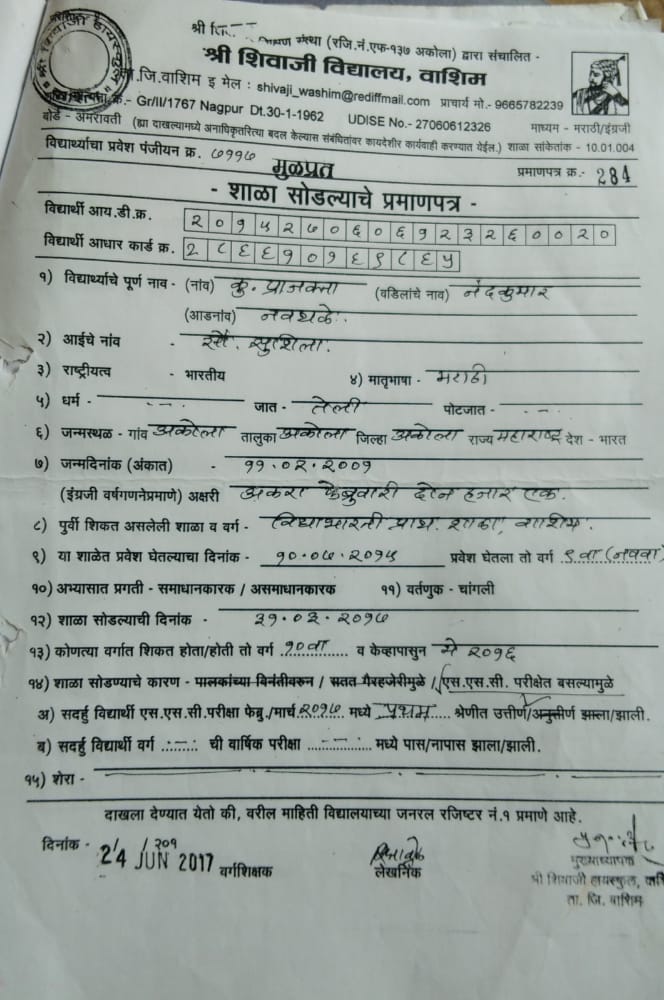 श्री शि
संस्था (रजि.नं.एफ-१३७ अकोला) द्वारा संचालित -
श्री शिवाजी विद्यालय, वाशिम
ता.जि.वाशिम इ मेल : shivaji_washim@rediffmail.com प्राचार्य मो.- 9665782239
क्र.- Gr/II/1767 Nagpur Dt.30-1-1962 UDISE No.- 27060612326
बोर्ड - अमरावती (ह्या दाखल्यामध्ये अनाधिकृतरित्या बदल केल्यास संबंधितांवर कायदेशीर कार्यवाही करण्यात येईल.) माध्यम - मराठी/इंग्रजी
शाळा सांकेतांक - 10.01.004
विद्यार्थ्याचा प्रवेश पंजीयन क्र. ७११७ मुळप्रत प्रमाणपत्र क्र.- 284
- शाळा सोडल्याचे प्रमाणपत्र -
विद्यार्थी आय.डी.क्र. २०१५२७०६०६१२३२६००२०
विद्यार्थी आधार कार्ड क्र. २८६६१०१६९८६५
१) विद्यार्थ्याचे पूर्ण नाव - (नांव) कु. प्राजक्ता (वडिलांचे नाव) नंदकुमार
(आडनांव) नवथळे.
२) आईचे नांव - सौ. सुशिला.
३) राष्ट्रीयत्व - भारतीय ४) मातृभाषा - मराठी
५) धर्म - --- जात - तेली पोटजात - ---
६) जन्मस्थळ - गांव अकोला तालुका अकोला जिल्हा अकोला राज्य महाराष्ट्र देश - भारत
७) जन्मदिनांक (अंकात) - ११.०२.२००१
(इंग्रजी वर्षगणनेप्रमाणे) अक्षरी अकरा फेब्रुवारी दोन हजार एक.
८) पुर्वी शिकत असलेली शाळा व वर्ग - विद्याभारती प्राथ. शाळा, वाशिम.
९) या शाळेत प्रवेश घेतल्याचा दिनांक - १०.०७.२०१५ प्रवेश घेतला तो वर्ग ९वा (नववा)
१०) अभ्यासात प्रगती - समाधानकारक / असमाधानकारक ११) वर्तणुक - चांगली
१२) शाळा सोडल्याची दिनांक - ३१.०३.२०१७
१३) कोणत्या वर्गात शिकत होता/होती तो वर्ग १०वा व केव्हापासुन मे २०१६
१४) शाळा सोडण्याचे कारण - पालकांच्या विनंतीवरुन / सतत गैरहजेरीमुळे / एस.एस.सी. परीक्षेत बसल्यामुळे
अ) सदर्हु विद्यार्थी एस.एस.सी.परीक्षा फेब्रु./मार्च २०१७ मध्ये प्रथम श्रेणीत उत्तीर्ण/अनुत्तीर्ण झाला/झाली.
ब) सदर्हु विद्यार्थी वर्ग --- ची वार्षिक परीक्षा --- मध्ये पास/नापास झाला/झाली.
१५) शेरा -
दाखला देण्यात येतो की, वरील माहिती विद्यालयाच्या जनरल रजिष्टर नं.१ प्रमाणे आहे.
दिनांक - / /२०१
24 JUN 2017 वर्गशिक्षक लेखनिक
मुख्याध्यापक
श्री शिवाजी हायस्कुल, वाशिम
ता. जि. वाशिम